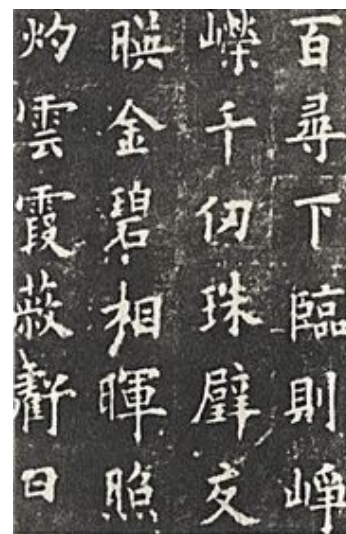 百尋下臨則崢
嶸千仞珠璧交
暎金碧相暉照
灼雲霞蔽虧日